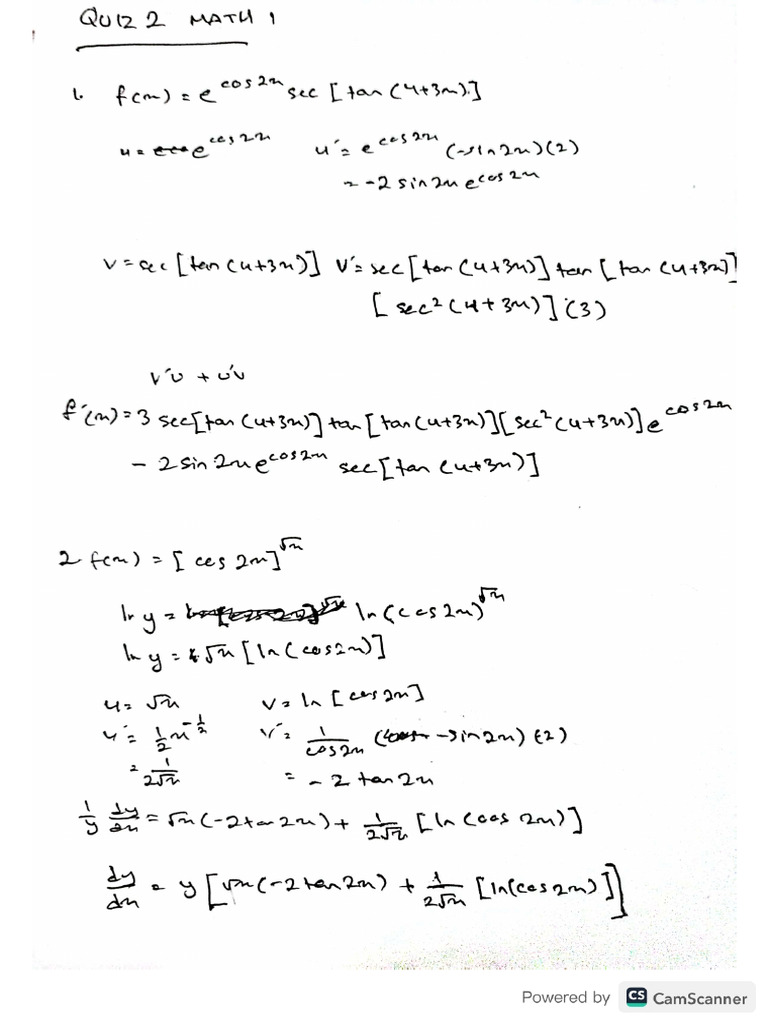 QUIZ 2 MATH 1
1. f(x) = e^{cos 2x} sec [tan (4+3x)]
u = e^{cos 2x} u' = e^{cos 2x} (-sin 2x)(2)
= -2 sin 2x e^{cos 2x}
v = sec [tan (4+3x)] v' = sec [tan (4+3x)] tan [tan (4+3x)]
[sec² (4+3x)] (3)
v'u + u'v
f'(x) = 3 sec [tan (4+3x)] tan [tan (4+3x)] [sec² (4+3x)] e^{cos 2x}
- 2 sin 2x e^{cos 2x} sec [tan (4+3x)]
2. f(x) = [cos 2x]^{√x}
ln y = ln (cos 2x)^{√x}
ln y = √x [ln (cos 2x)]
u = √x v = ln [cos 2x]
u' = 1/2 x^{-1/2} v' = 1/cos 2x (-sin 2x) (2)
= 1/2√x = -2 tan 2x
1/y dy/dx = √x (-2 tan 2x) + 1/2√x [ln (cos 2x)]
dy/dx = y [√x (-2 tan 2x) + 1/2√x [ln (cos 2x)]]
Powered by CS CamScanner